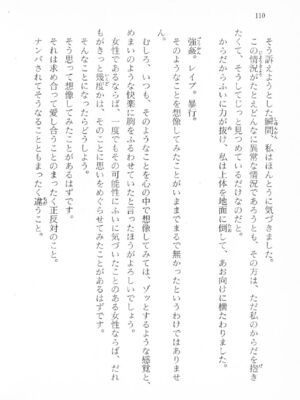 110
そう訴えようとした瞬間、私はほんとうに気づきました。
この情況がたとえどんなに異常な情況であろうとも、その方は、ただ私のからだを抱き
たくて、そうしてじっと見つめているだけなのだと。
からだからふいに力が抜け、私は上体を地面に倒して、あお向けに横たわりました。
強姦。レイプ。暴行。
そのようなことを想像してみたことがまるで無かったというわけではありませ
ん。
むしろ、いつも、そのようなことを心の中で想像してみては、ゾッとするような感覚と、
めまいのような快楽に胸をふるわせていたと言ったほうがよろしいでしょう。
女性であるならば、一度でもその可能性にふいに気づいたことのある女性ならば、だれ
もがきっと幾度かは、そのことに思いをめぐらせてみたことがあるはずです。
そんなことになったらどうしよう。
そう思って想像してみたことがあるはずです。
それは求め合って愛し合うことのまったく正反対のこと。
ナンパされてそうなることともまったく違うこと。